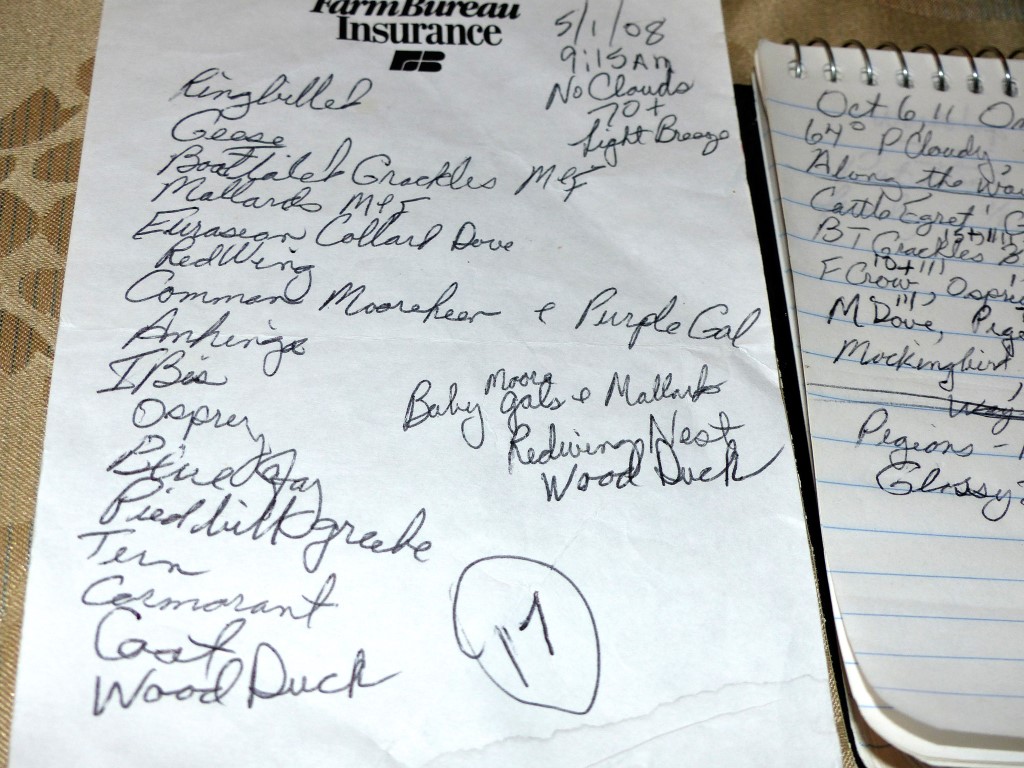 FarmBureau
Insurance
FB
5/1/08
9:15AM
No Clouds
70+
Light Breeze
Ringbilled
Geese
Boattailed Grackles M&F
Mallards M&F
Eurasean Collard Dove
RedWing
Common Moorehen & Purple Gal
Anhinga
IBis
Osprey
Blue Jay
Piedbilld grebe
Tern
Cormorant
Coot
Wood Duck
Baby Moore gals & Mallards
Redwing Nest
Wood Duck
17
Oct 6 11
64° P Cloudy,
Along the way
Cattle Egret
BT Grackles
F Crow, Osprey
M Dove,
Mockingbird
Way
Pegions -
Glossy